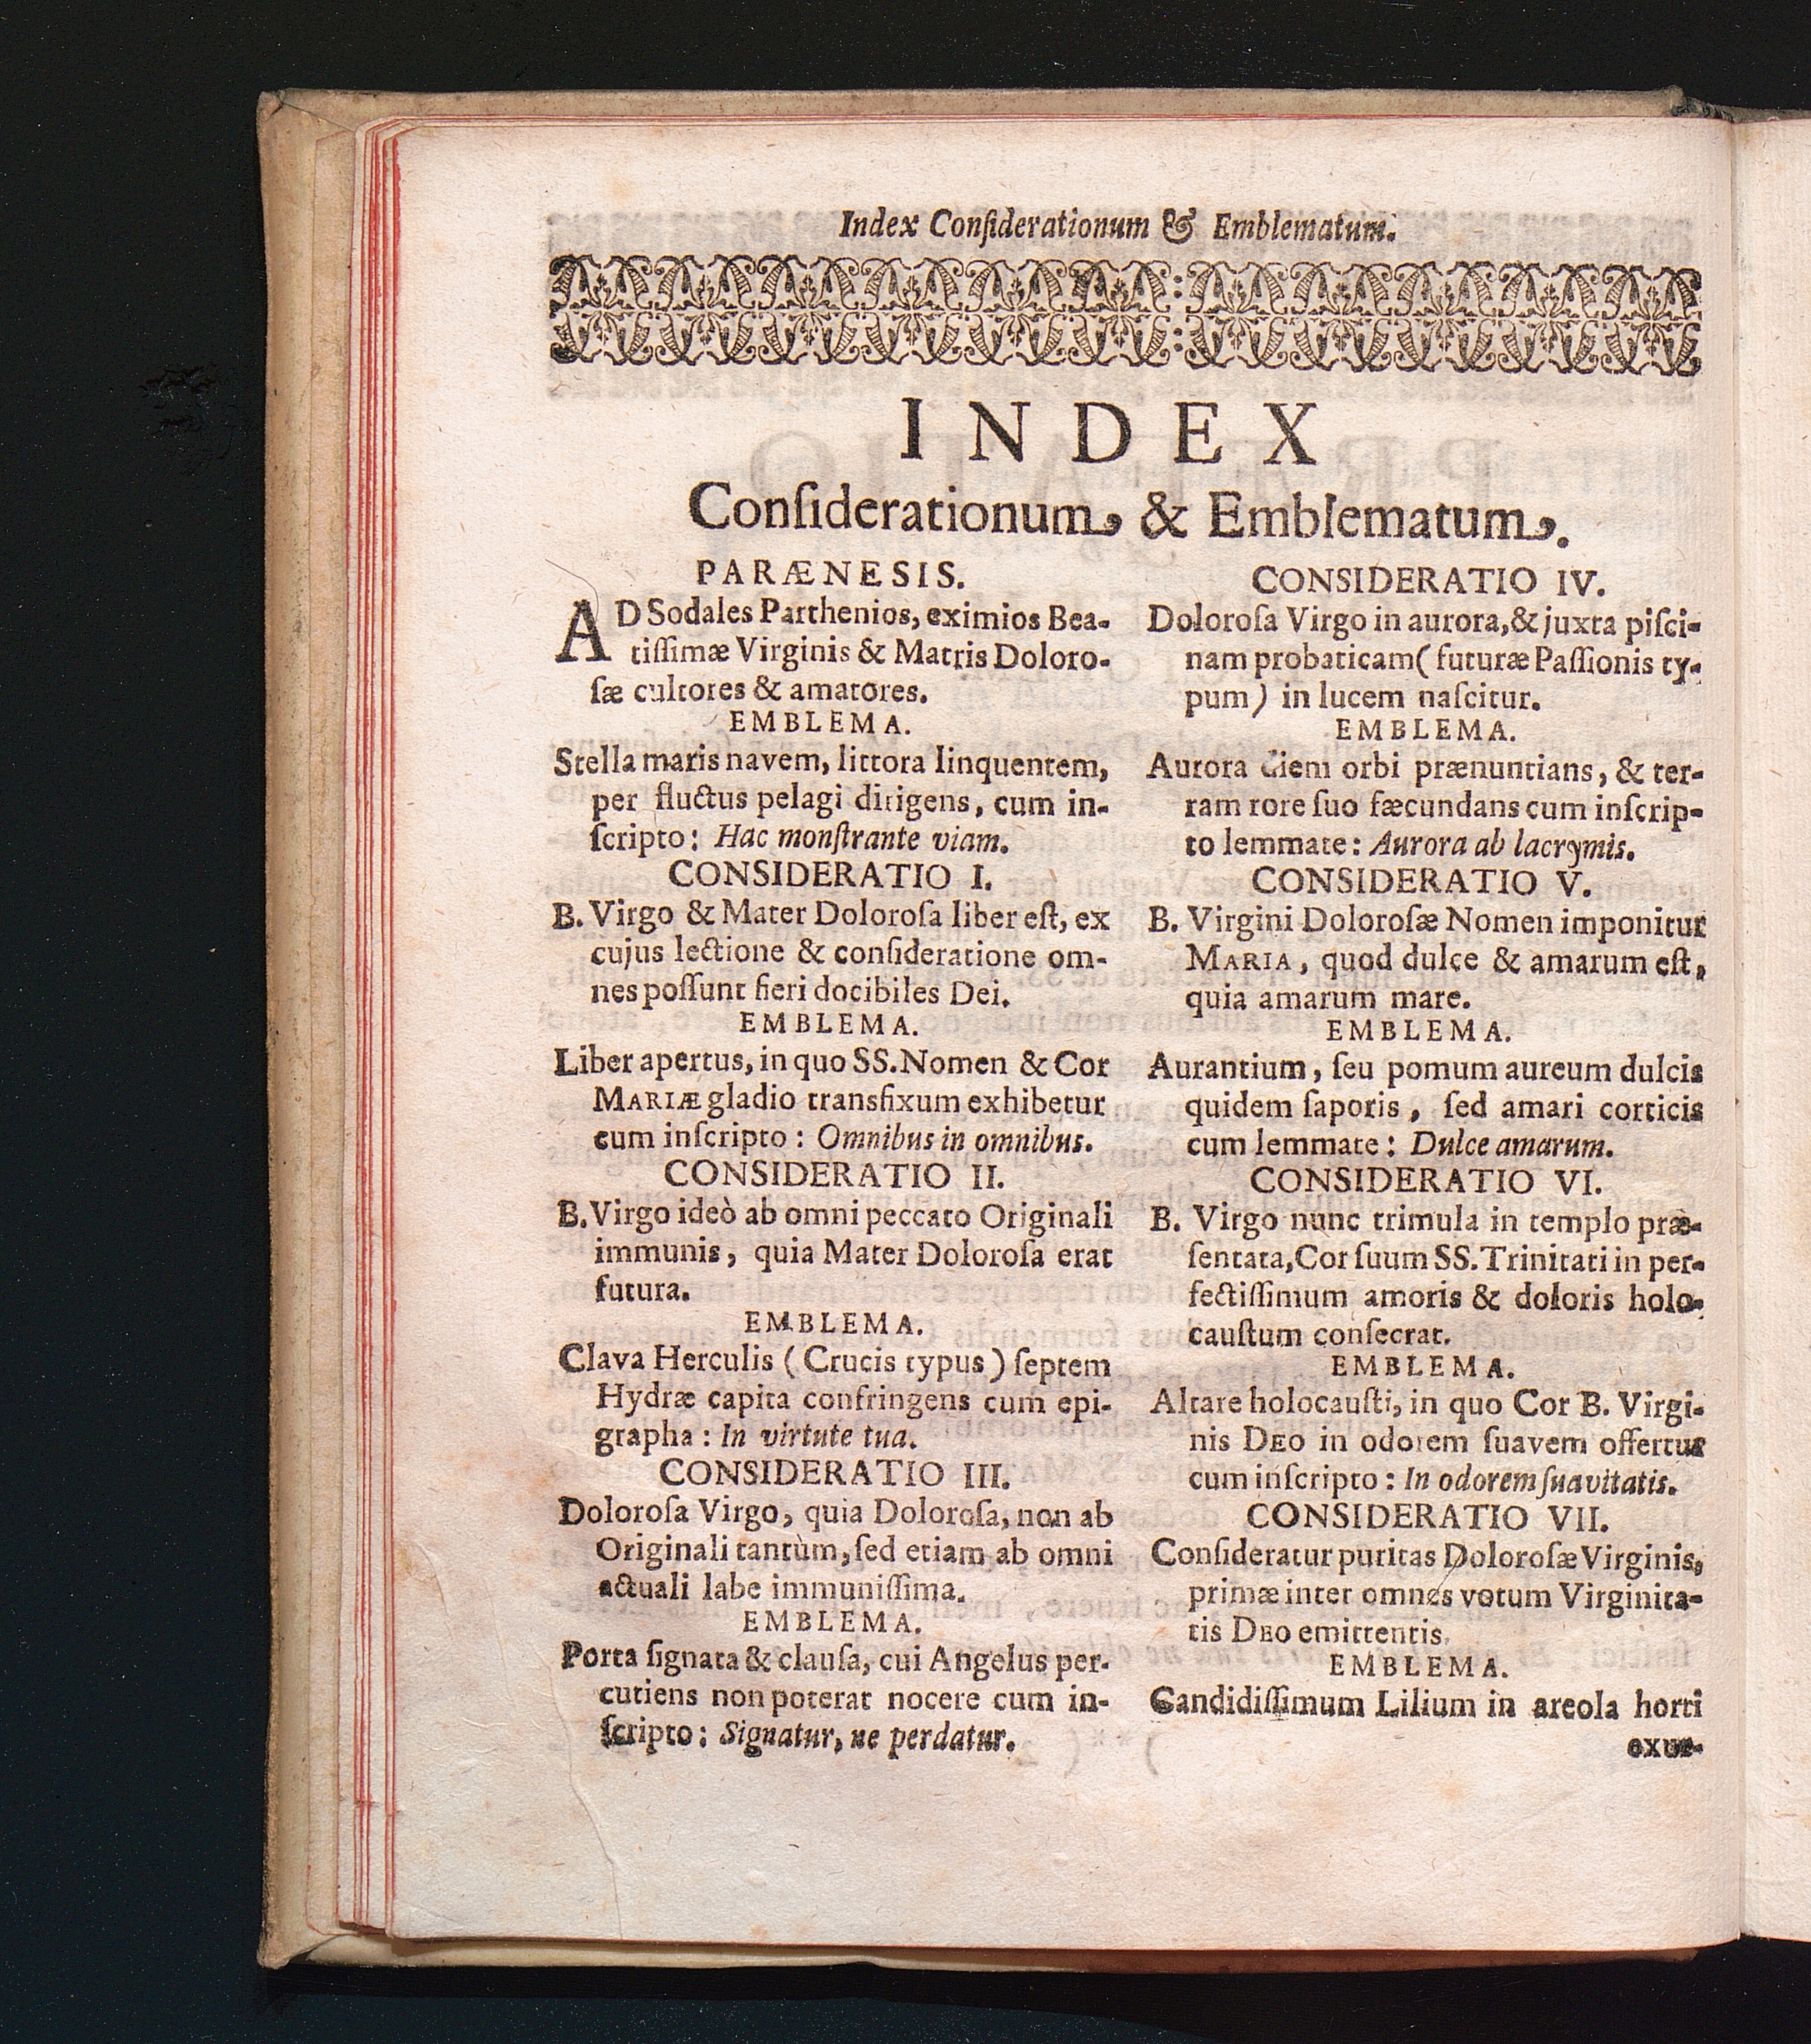 Index Conſiderationum & Emblematum.
INDEX
Conſiderationum, & Emblematum,.
PARÆNESIS.
AD Sodales Parthenios, eximios Bea-
tiſſimæ Virginis & Matris Doloro-
ſæ cultores & amatores.
EMBLEMA.
Stella maris navem, littora linquentem,
per fluctus pelagi dirigens, cum in-
ſcripto: Hac monſtrante viam.
CONSIDERATIO I.
B. Virgo & Mater Doloroſa liber eſt, ex
cujus lectione & conſideratione om-
nes poſſunt fieri docibiles Dei.
EMBLEMA.
Liber apertus, in quo SS. Nomen & Cor
MARIÆ gladio transfixum exhibetur
cum inſcripto: Omnibus in omnibus.
CONSIDERATIO II.
B. Virgo ideò ab omni peccato Originali
immunis, quia Mater Doloroſa erat
futura.
EMBLEMA.
Clava Herculis (Crucis typus) ſeptem
Hydræ capita confringens cum epi-
grapha: In virtute tua.
CONSIDERATIO III.
Doloroſa Virgo, quia Doloroſa, non ab
Originali tantùm, ſed etiam ab omni
actuali labe immuniſſima.
EMBLEMA.
Porta ſignata & clauſa, cui Angelus per-
cutiens non poterat nocere cum in-
ſcripto: Signatur, ne perdatur.
CONSIDERATIO IV.
Doloroſa Virgo in aurora, & juxta piſci-
nam probaticam (futuræ Paſſionis ty-
pum) in lucem naſcitur.
EMBLEMA.
Aurora diem orbi prænuntians, & ter-
ram rore ſuo fæcundans cum inſcrip-
to lemmate: Aurora ab lacrymis.
CONSIDERATIO V.
B. Virgini Doloroſæ Nomen imponitur
MARIA, quod dulce & amarum eſt,
quia amarum mare.
EMBLEMA.
Aurantium, ſeu pomum aureum dulcis
quidem ſaporis, ſed amari corticis
cum lemmate: Dulce amarum.
CONSIDERATIO VI.
B. Virgo nunc trimula in templo præ-
ſentata, Cor ſuum SS. Trinitati in per-
fectiſſimum amoris & doloris holo-
cauſtum conſecrat.
EMBLEMA.
Altare holocauſti, in quo Cor B. Virgi-
nis DEO in odorem ſuavem offertur
cum inſcripto: In odorem ſuavitatis.
CONSIDERATIO VII.
Conſideratur puritas Doloroſæ Virginis,
primæ inter omnes votum Virginita-
tis DEO emittentis.
EMBLEMA.
Candidiſſimum Lilium in areola horti
exur-